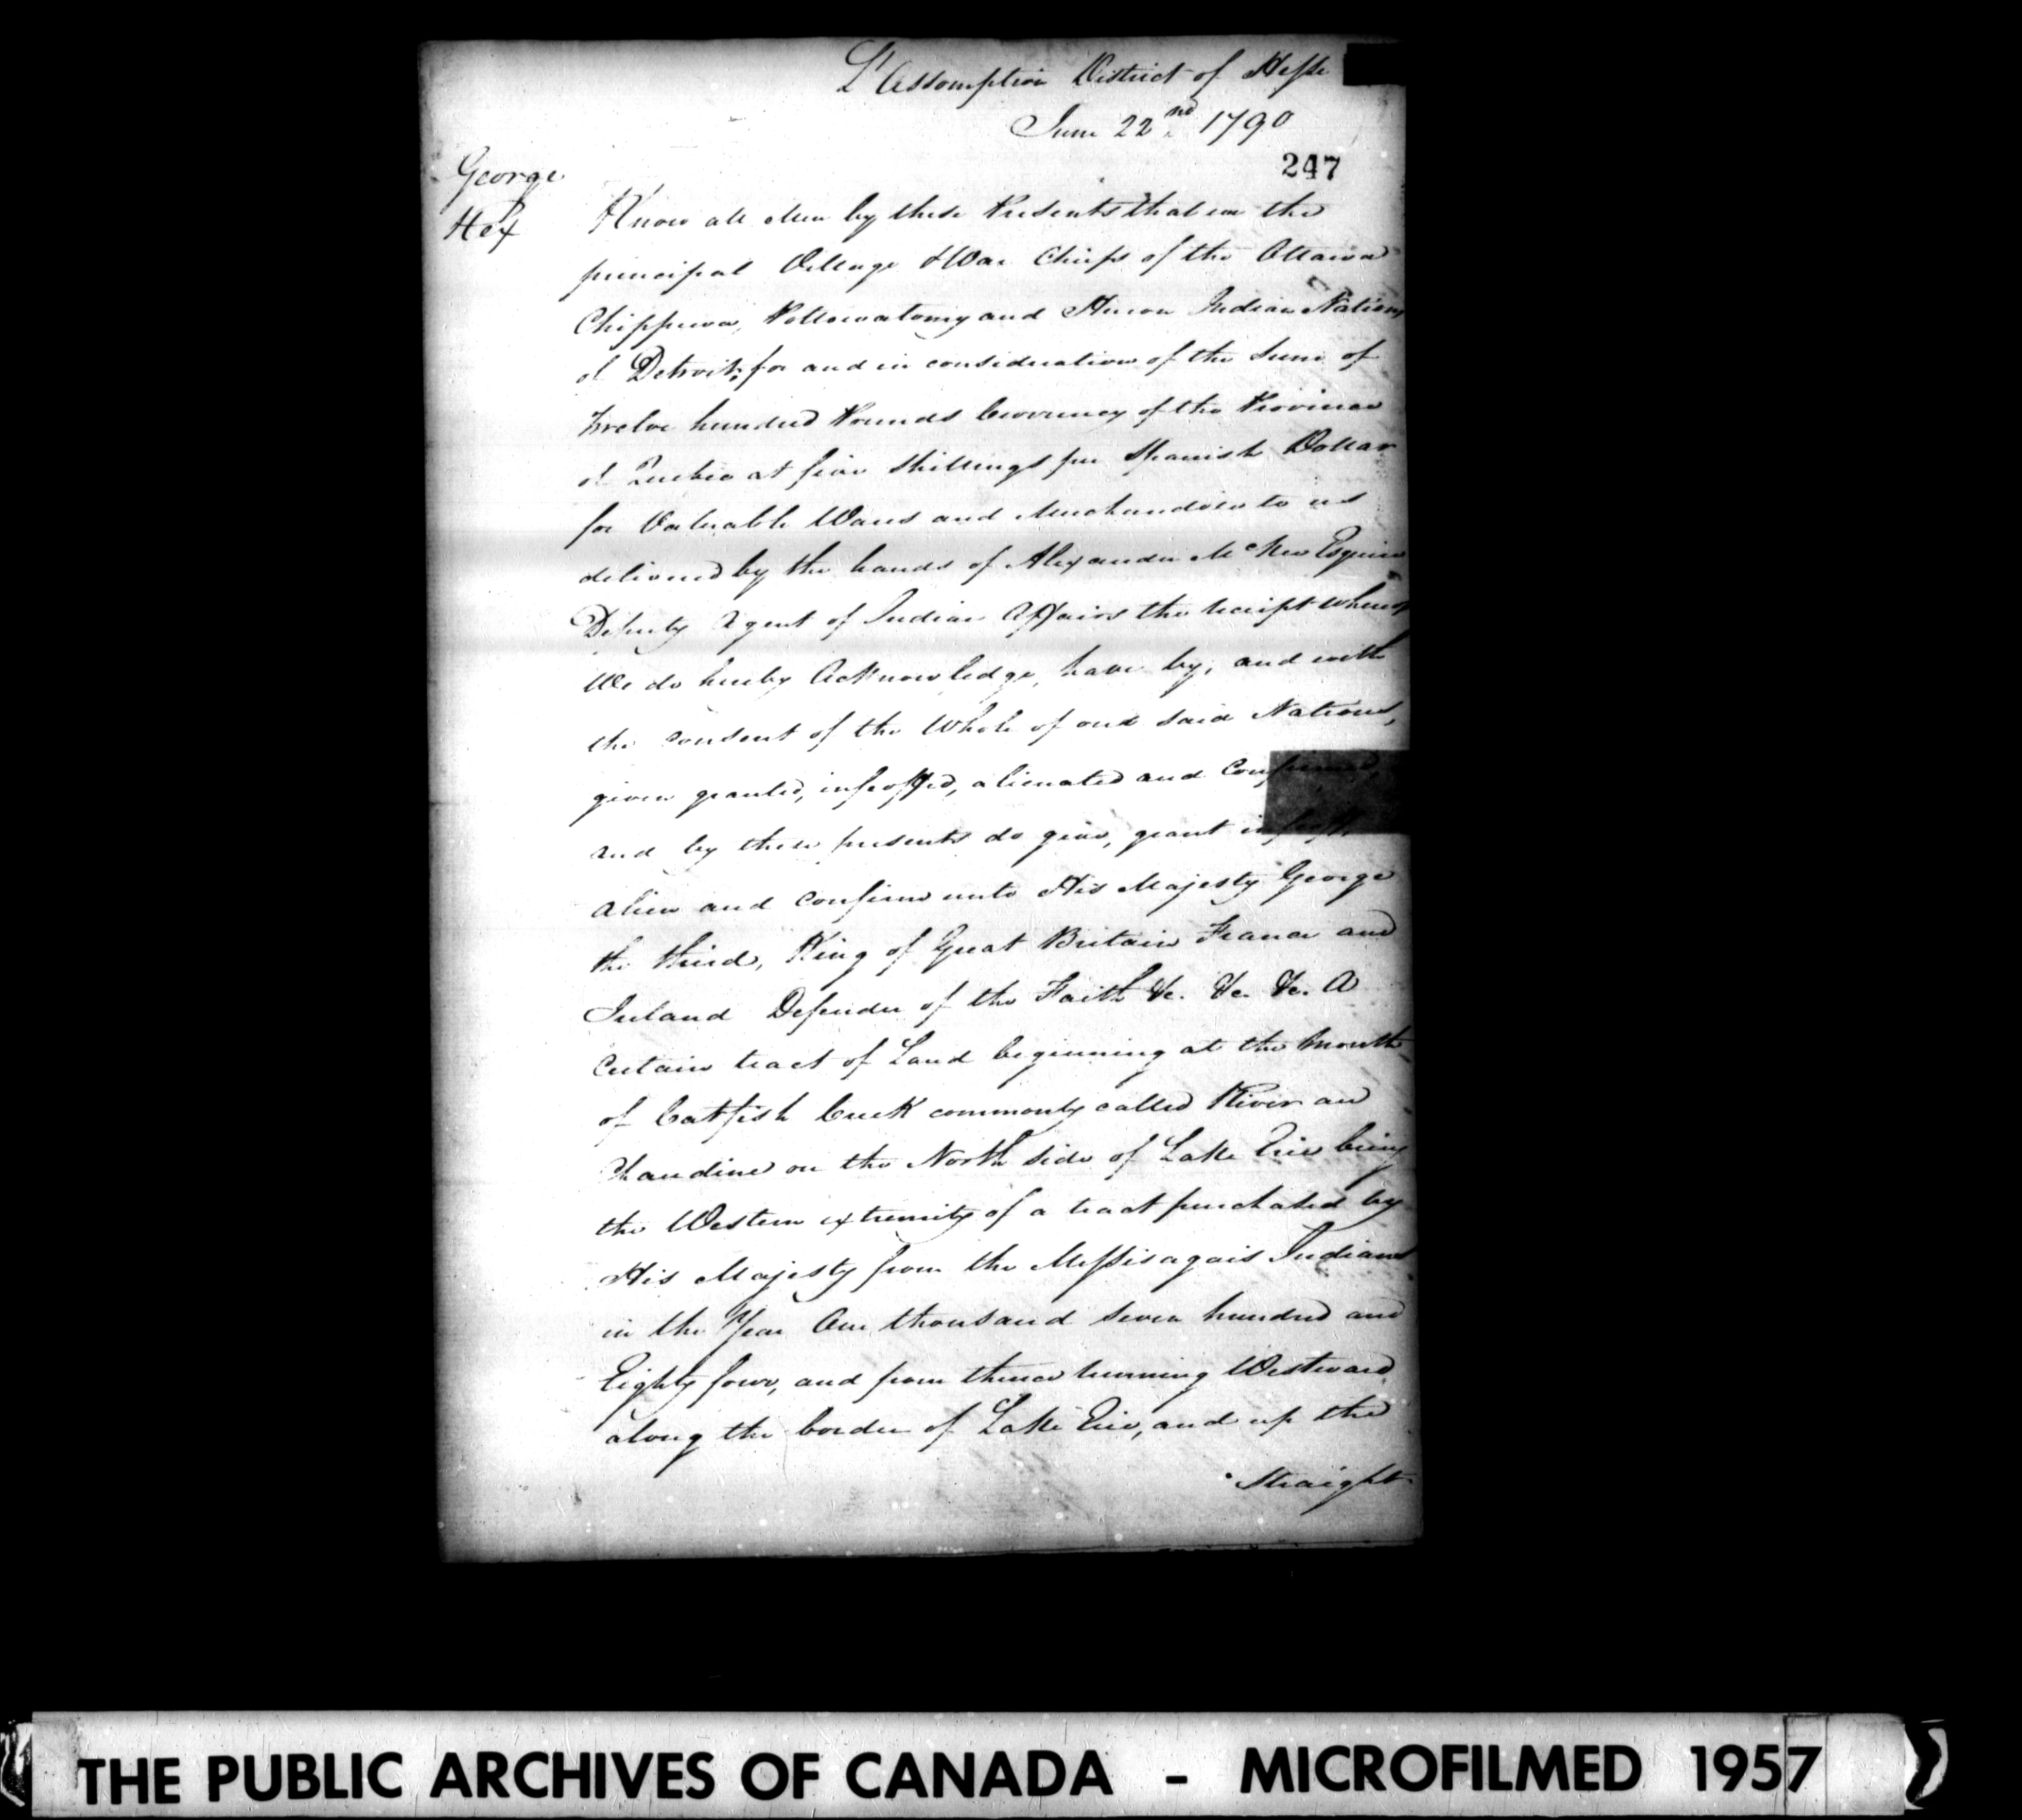 L'Assomption District of Hesse
June 22nd 1790
247
George
Rex
Know all Men by these Presents that we the
principal Village & War Chiefs of the Ottawa
Chippewa, Pottowatomy and Huron Indian Nations
of Detroit, for and in consideration of the Sum of
Twelve hundred Pounds Currency of the Province
of Quebec at five Shillings per Spanish Dollar
for Valuable Wares and Merchandise to us
delivered by the hands of Alexander McKee Esquire
Deputy Agent of Indian Affairs the receipt whereof
We do hereby Acknowledge, have by, and with
the consent of the Whole of our said Nations,
given granted, infeoffed, alienated and Confirmed,
and by these presents do give, grant infeoff,
alien and confirm unto His Majesty George
the third, King of Great Britain France and
Ireland Defender of the Faith &c. &c. &c. A
Certain tract of Land beginning at the Mouth
of Catfish Creek commonly called River au
Chaudiere on the North side of Lake Erie being
the Western extremity of a tract purchased by
His Majesty from the Messisagais Indians
in the Year One thousand seven hundred and
Eighty four, and from thence running Westward
along the border of Lake Erie, and up the
Straight
THE PUBLIC ARCHIVES OF CANADA - MICROFILMED 1957